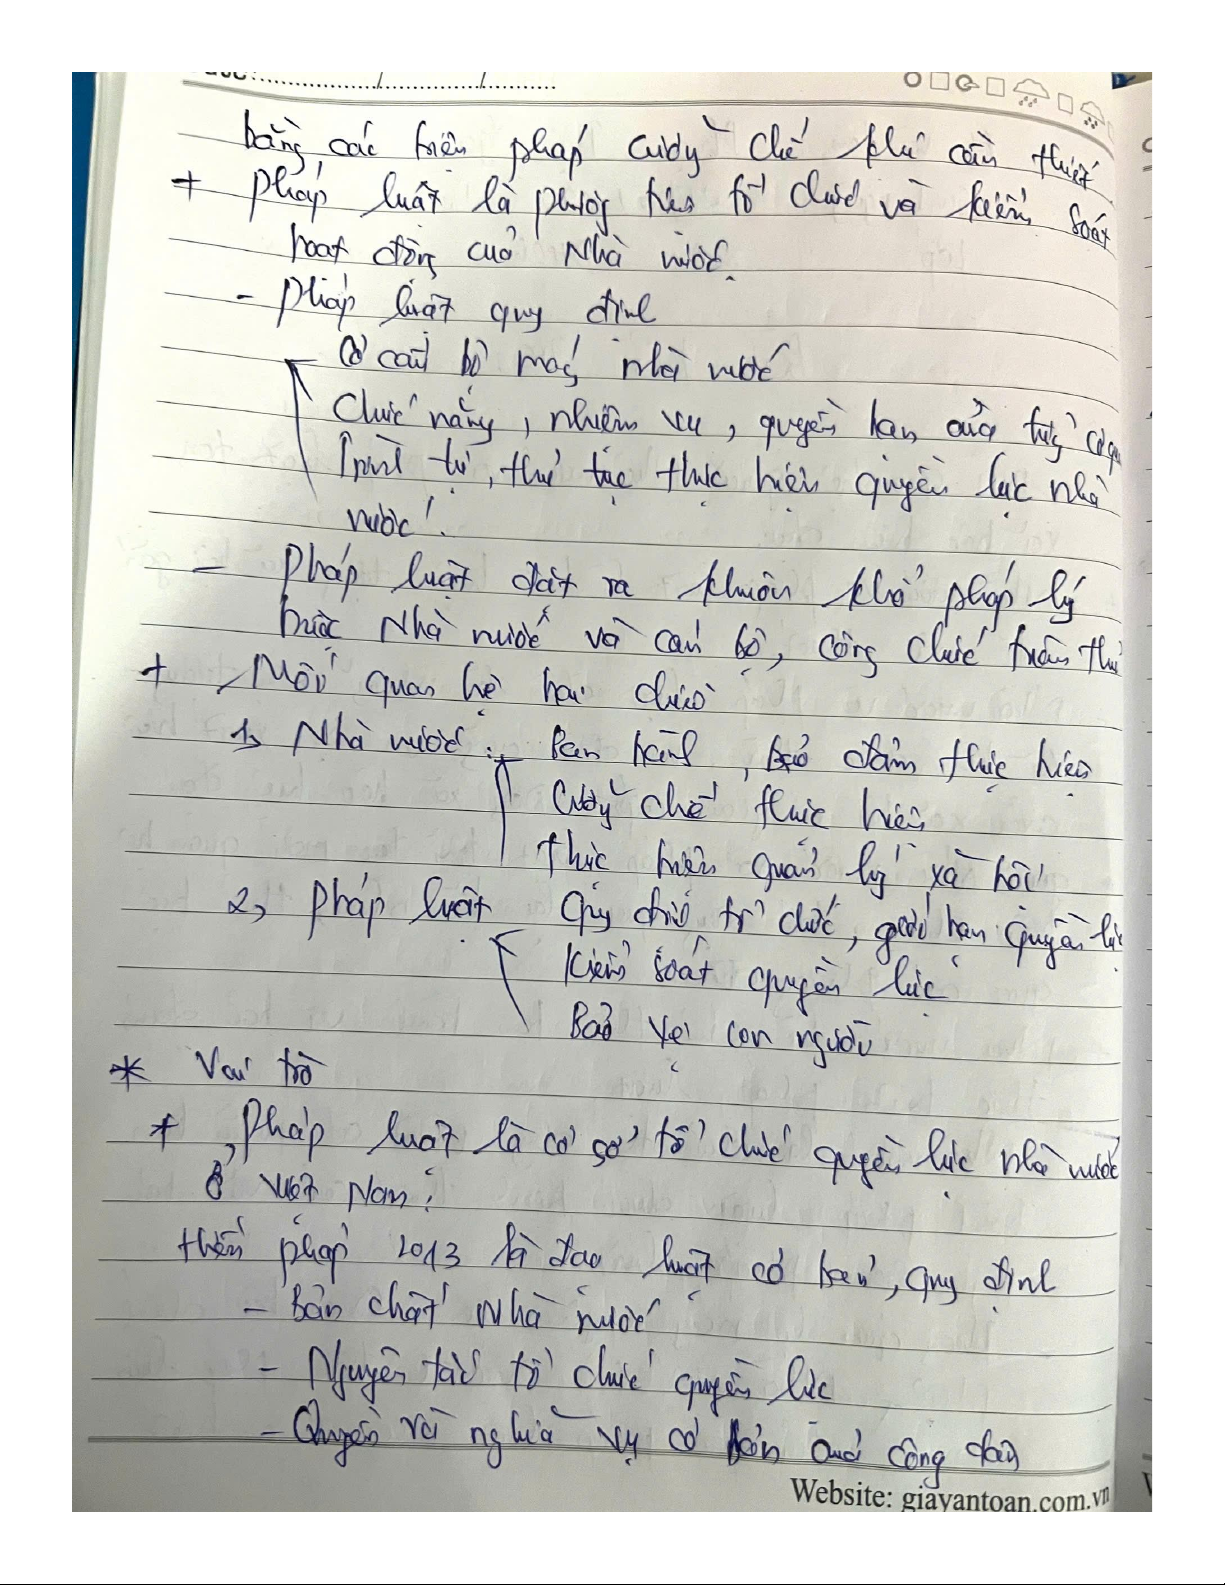 bằng các biện pháp cưỡng chế khi cần thiết
+ pháp luật là phương tiện tổ chức và kiểm soát
hoạt động của Nhà nước.
- pháp luật quy định
Cơ cấu bộ máy nhà nước
Chức năng, nhiệm vụ, quyền hạn của từng cơ qu
Trình tự, thủ tục thực hiện quyền lực nhà
nước.
- Pháp luật đặt ra khuôn khổ pháp lý
buộc Nhà nước và cán bộ, công chức tuân thủ
+ Mối quan hệ hai chiều
1, Nhà nước: Ban hành, bảo đảm thực hiện
Cưỡng chế thực hiện
thực hiện quản lý xã hội
2, Pháp luật Quy định tổ chức, giới hạn quyền lực
Kiểm soát quyền lực
Bảo vệ con người
* Vai trò
+ Pháp luật là cơ sở tổ chức quyền lực nhà nước
ở Việt Nam:
Hiến pháp 2013 là đạo luật cơ bản, quy định
- Bản chất Nhà nước
- Nguyên tắc tổ chức quyền lực
- Quyền và nghĩa vụ cơ bản của công dân
Website: giayvantoan.com.vn